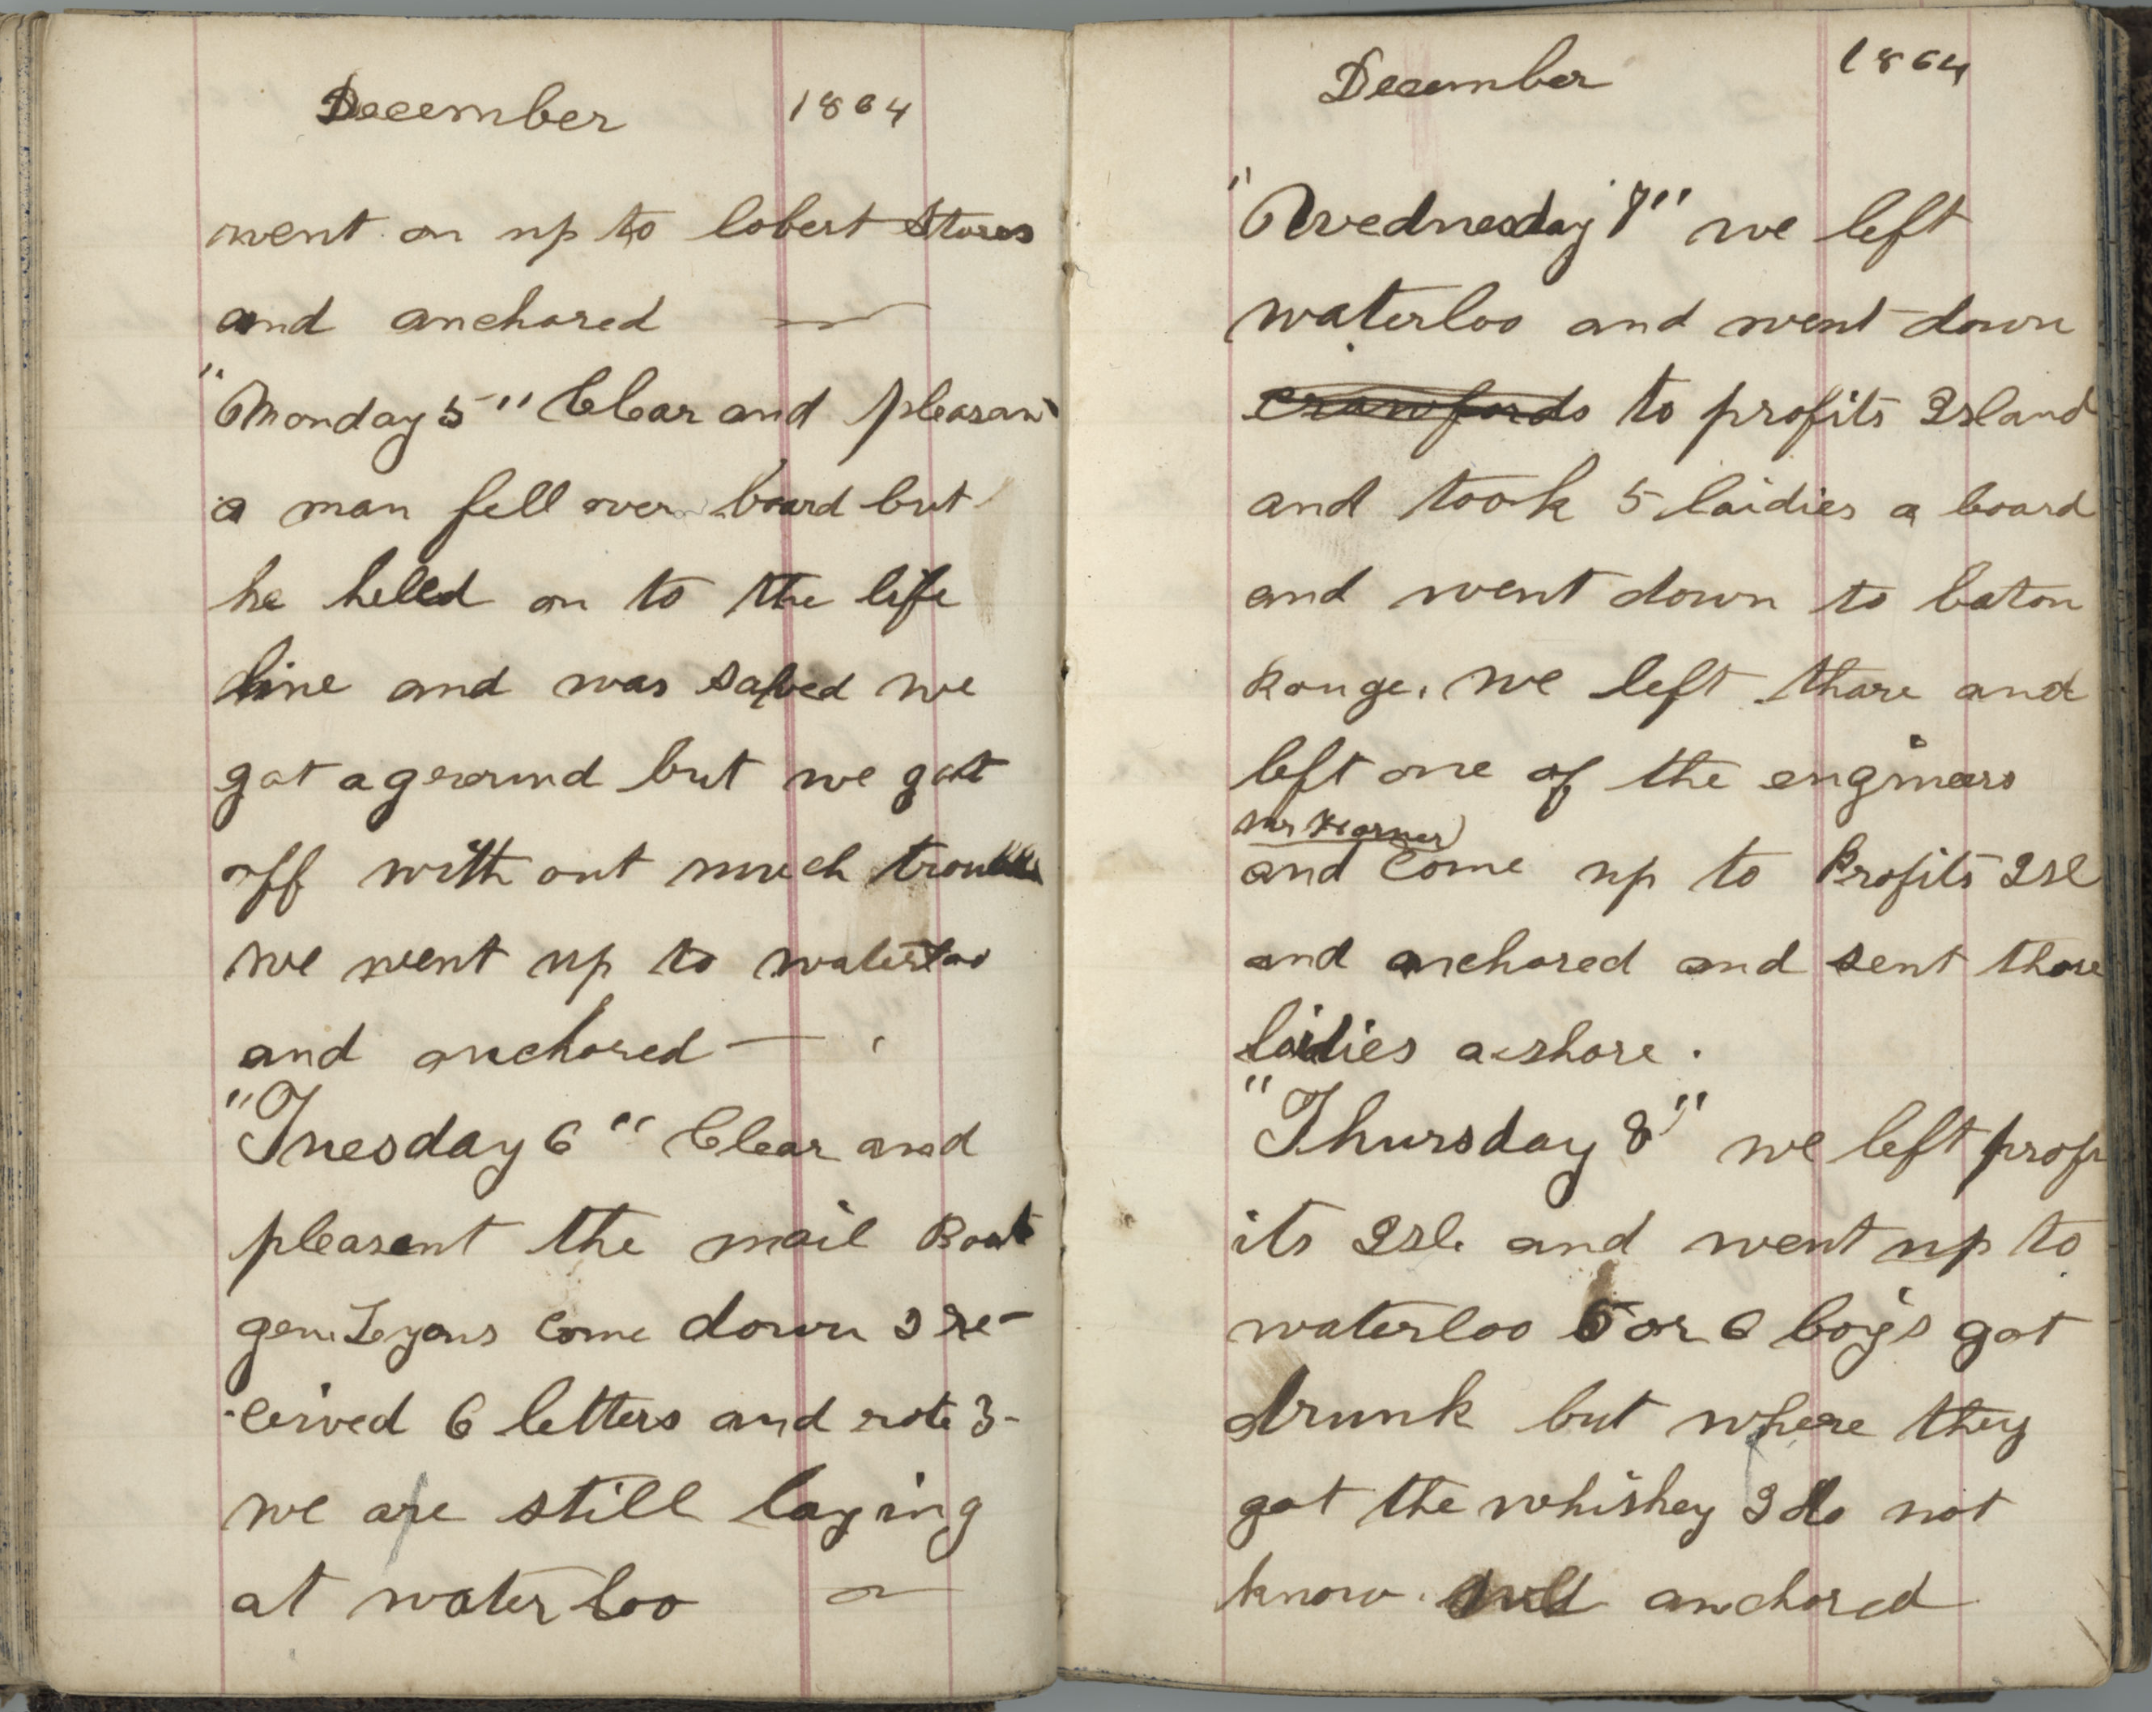 December 1864
went on up to lobert Stores
and anchored
"Monday 5" Clear and pleasan
a man fell over board but
he helled on to the life
line and was saved we
got a geround but we got
off with out much trouble
we went up to waterloo
and anchored —
"Tuesday 6" Clear and
pleasent the mail Boat
gen. Lyons come down I re-
ceived 6 letters and rote 3-
we are still laying
at waterloo
December 1864
"Wednesday 7" we left
waterloo and went down
crawfords to profits Island
and took 5 laidies a board
and went down to baton
Rouge. we left thare and
left one of the engineers
Mr
and come up to Profits Isl
and anchored and sent those
laidies a shore.
"Thursday 8" we left prof
its Isl. and went up to
waterloo 5 or 6 boys got
drunk but where they
got the whiskey I do not
know. and anchored